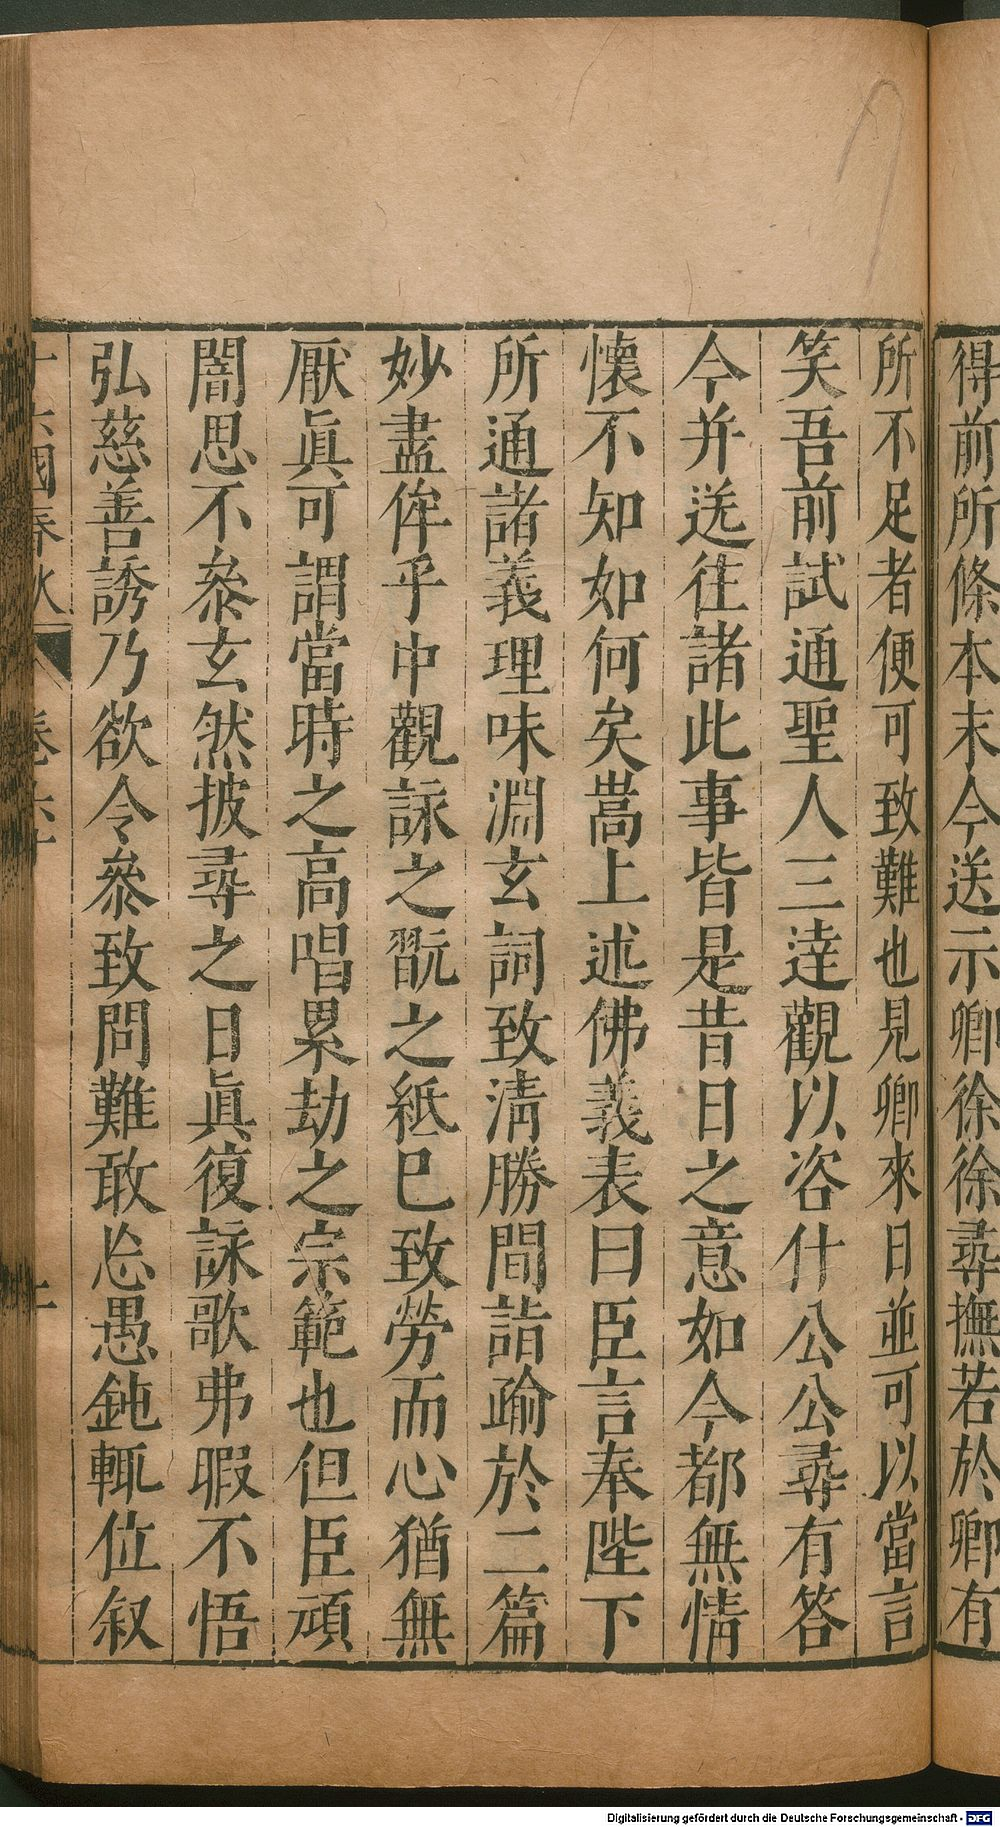 得前所條本末今送示卿徐徐尋撫若於卿有
所不足者便可致難也見卿來日並可以當言
笑吾前試通聖人三達觀以咨什公公尋有答
今并送往諸此事皆是昔日之意如今都無情
懷不知如何矣嵩上述佛義表曰臣言奉陛下
所通諸義理味淵玄詞致清勝間詣踰於二篇
妙盡侔乎中觀詠之翫之紙已致勞而心猶無
厭眞可謂當時之高唱累劫之宗範也但臣頑
闇思不叅玄然披尋之日眞復詠歌弗暇不悟
弘慈善誘乃欲令叅致問難敢忩愚鈍輒位叙
十六國春秋 卷六十
Digitalisierung gefördert durch die Deutsche Forschungsgemeinschaft - DFG